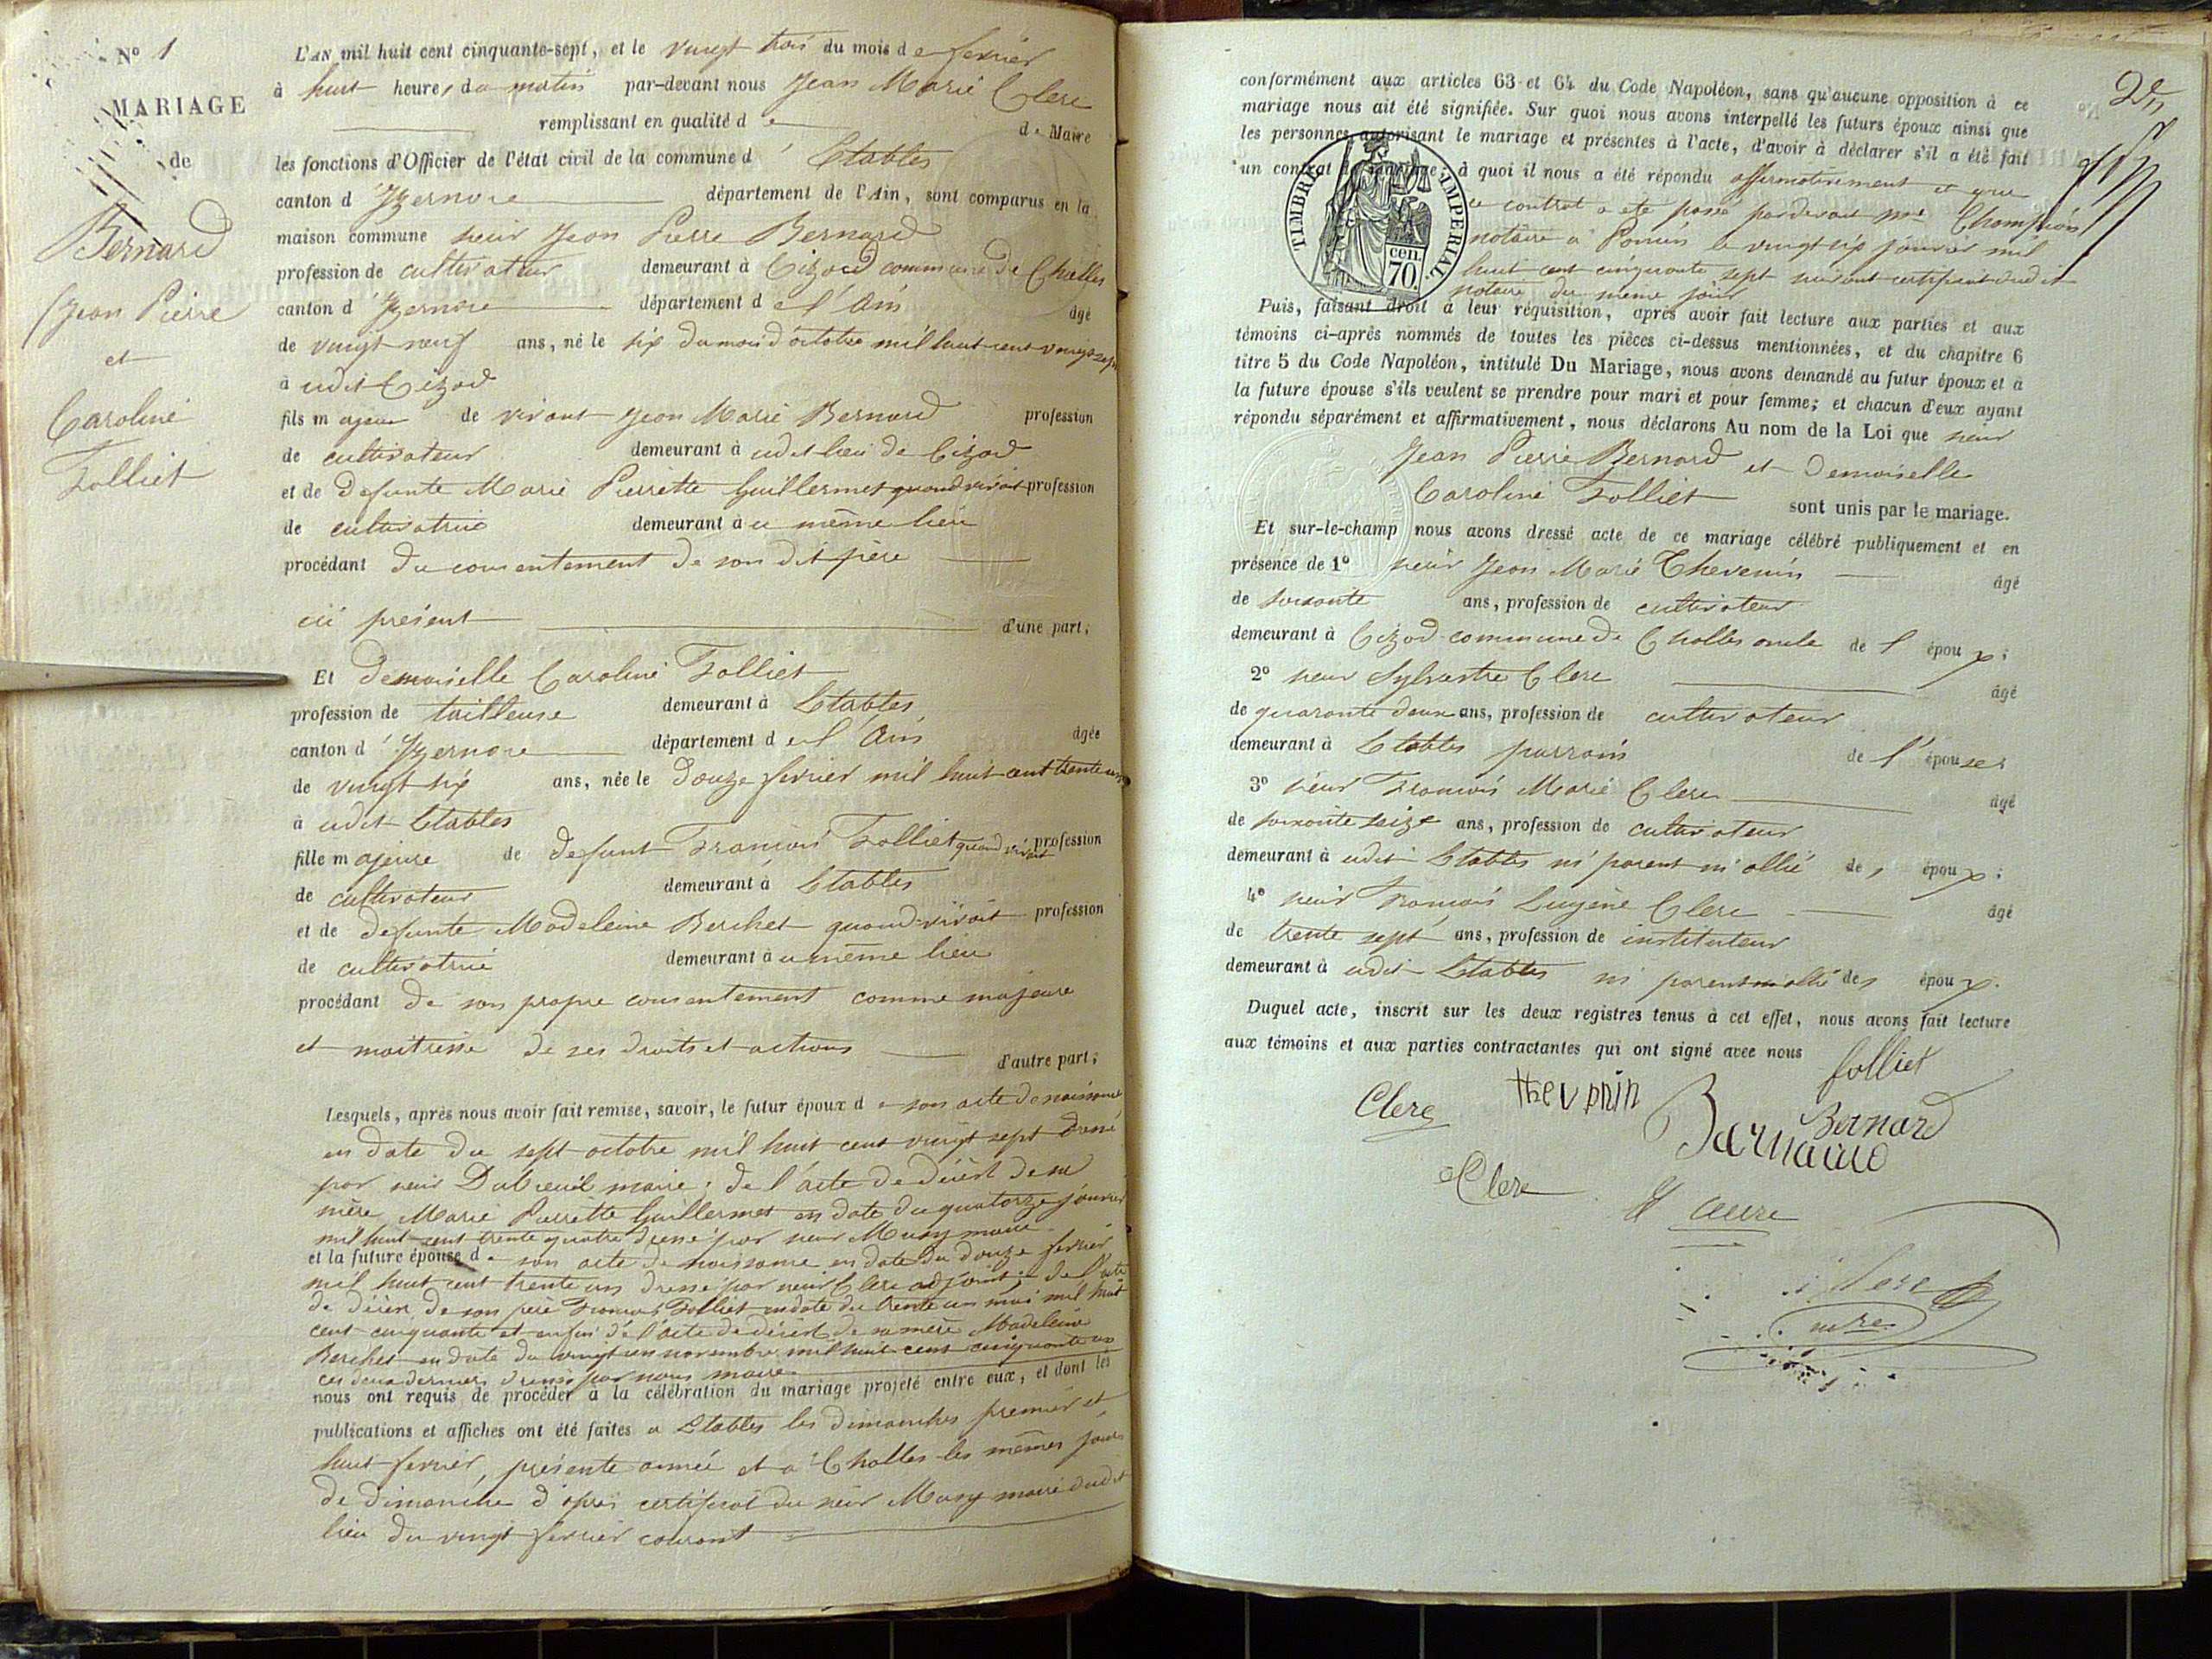 N° 1
MARIAGE
de
Bernard
Jean Pierre
et
Caroline
Folliet
L'AN mil huit cent cinquante-sept, et le vingt trois du mois de fevrier
à huit heures du matin par-devant nous Jean Marie Clerc
remplissant en qualité de de Maire
les fonctions d'Officier de l'état civil de la commune d' Etables
canton d' Yzernore département de l'Ain, sont comparus en la
maison commune sieur Jean Pierre Bernard
profession de cultivateur demeurant à Cizod commune de Challes
canton d' Yzernore département de l'Ain âgé
de vingt neuf ans, né le six du mois d'octobre mil huit cent vingt sept
à udit Cizod
fils majeur de vivant Jean Marie Bernard profession
de cultivateur demeurant à udit lieu de Cizod
et de defunte Marie Pierrette Guillermet quand vivait profession
de cultivatrice demeurant à u même lieu
procédant du consentement de son dit père
ici présent d'une part;
Et demoiselle Caroline Folliet
profession de tailleuse demeurant à Etables
canton d' Yzernore département de l'Ain âgée
de vingt six ans, née le douze fevrier mil huit cent trente un
à udit Etables
fille majeure de defunt François Folliet quand vivait profession
de cultivateur demeurant à Etables
et de defunte Madeleine Berchet quand vivait profession
de cultivatrice demeurant à u même lieu
procédant de son propre consentement comme majeure
et maitresse de ses droits et actions d'autre part;
Lesquels, après nous avoir fait remise, savoir, le futur époux de son acte de naissance
en date du sept octobre mil huit cent vingt sept dressé
par sieur Dubreuil maire; de l'acte de décès de sa
mère Marie Pierrette Guillermet en date du quatorze janvier
mil huit cent trente quatre dressé par sieur Musy maire
et la future épouse de son acte de naissance en date du douze fevrier
mil huit cent trente un dressé par sieur Clerc adjoint; de l'acte
de décès de son père François Folliet en date du trente un mai mil huit
cent cinquante et enfin de l'acte de décès de sa mère Madeleine
Berchet en date du vingt un novembre mil huit cent cinquante un
ces deux derniers dressés par nous maire
nous ont requis de procéder à la célébration du mariage projeté entre eux, et dont les
publications et affiches ont été faites a Etables les dimanches premier et
huit fevrier, présente année et a Challes les mêmes jours
de dimanche d'après certificat du sieur Musy maire dudit
lieu du vingt fevrier courant
conformément aux articles 63 et 64 du Code Napoléon, sans qu'aucune opposition à ce
mariage nous ait été signifiée. Sur quoi nous avons interpellé les futurs époux ainsi que
les personnes autorisant le mariage et présentes à l'acte, d'avoir à déclarer s'il a été fait
un contrat de mariage; à quoi il nous a été répondu affirmativement et que
ce contrat a été passé pardevant me Champion
notaire a Poncin le vingt six janvier mil
huit cent cinquante sept suivant certificat dudit
notaire du même jour
TIMBRE IMPERIAL
cen.
70.
Puis, faisant droit à leur réquisition, après avoir fait lecture aux parties et aux
témoins ci-après nommés de toutes les pièces ci-dessus mentionnées, et du chapitre 6
titre 5 du Code Napoléon, intitulé Du Mariage, nous avons demandé au futur époux et à
la future épouse s'ils veulent se prendre pour mari et pour femme; et chacun d'eux ayant
répondu séparément et affirmativement, nous déclarons Au nom de la Loi que sieur
Jean Pierre Bernard et Demoiselle
Caroline Folliet sont unis par le mariage.
Et sur-le-champ nous avons dressé acte de ce mariage célébré publiquement et en
présence de 1° sieur Jean Marie Thevenin âgé
de soixante ans, profession de cultivateur
demeurant à Cizod commune de Challes oncle de l' époux;
2° sieur Sylvestre Clerc âgé
de quarante deux ans, profession de cultivateur
demeurant à Etables parrain de l' épouse;
3° sieur François Marie Clerc âgé
de soixante seize ans, profession de cultivateur
demeurant à udit Etables ni parent ni allié des époux;
4° sieur François Eugène Clerc âgé
de trente sept ans, profession de instituteur
demeurant à udit Etables ni parent ni allié des époux.
Duquel acte, inscrit sur les deux registres tenus à cet effet, nous avons fait lecture
aux témoins et aux parties contractantes qui ont signé avec nous
folliet
Clerc
thevenin
Bernard
Barnaud
Clerc
Clerc
mre